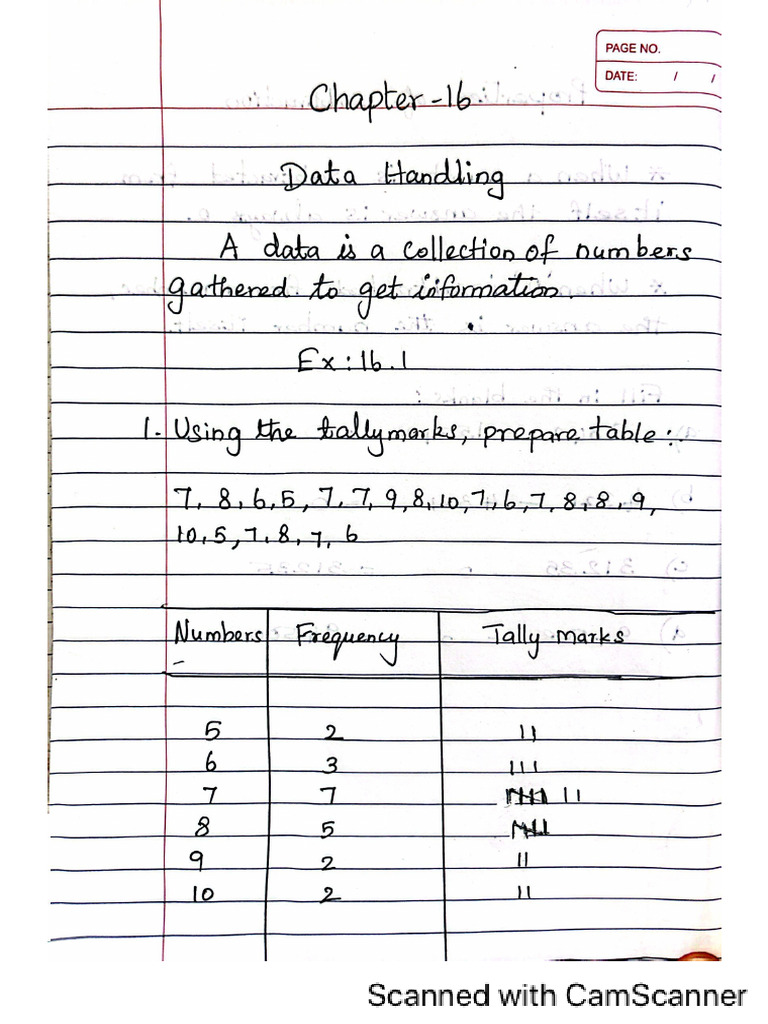 PAGE NO.
DATE: / /
Chapter-16
Data Handling
A data is a collection of numbers
gathered to get information.
Ex: 16.1
1. Using the tallymarks, prepare table:
7, 8, 6, 5, 7, 7, 9, 8, 10, 7, 6, 7, 8, 8, 9,
10, 5, 7, 8, 7, 6
Numbers Frequency Tally marks
5 2 ||
6 3 |||
7 7 |||| ||
8 5 ||||
9 2 ||
10 2 ||
Scanned with CamScanner